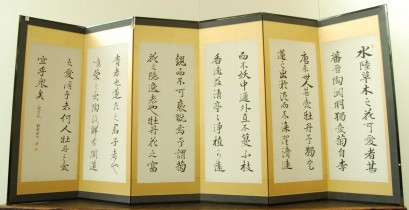 水陸草木之花可愛者甚
蕃晉陶淵明獨愛菊自李
唐来世人甚愛牡丹予獨愛
蓮之出於淤泥而不染濯清漣
而不妖中通外直不蔓不枝
香遠益清亭々淨植可遠
觀而不可褻翫焉予謂菊
花之隱逸者也牡丹花之富
貴者也蓮花之君子者也
噫菊之愛陶後鮮有聞蓮
之愛同予者何人牡丹之愛
宜乎衆矣